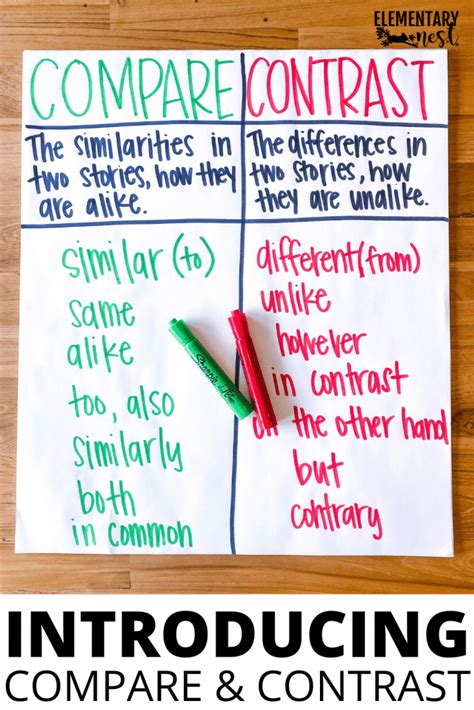 ELEMENTARY
nest
COMPARE
The similarities in
two stories, how they
are alike.
similar (to)
same
alike
too, also
similarly
both
in common
CONTRAST
The differences in
two stories, how
they are unalike.
different(from)
unlike
however
in contrast
on the other hand
but
contrary
Sharpie
INTRODUCING
COMPARE & CONTRAST